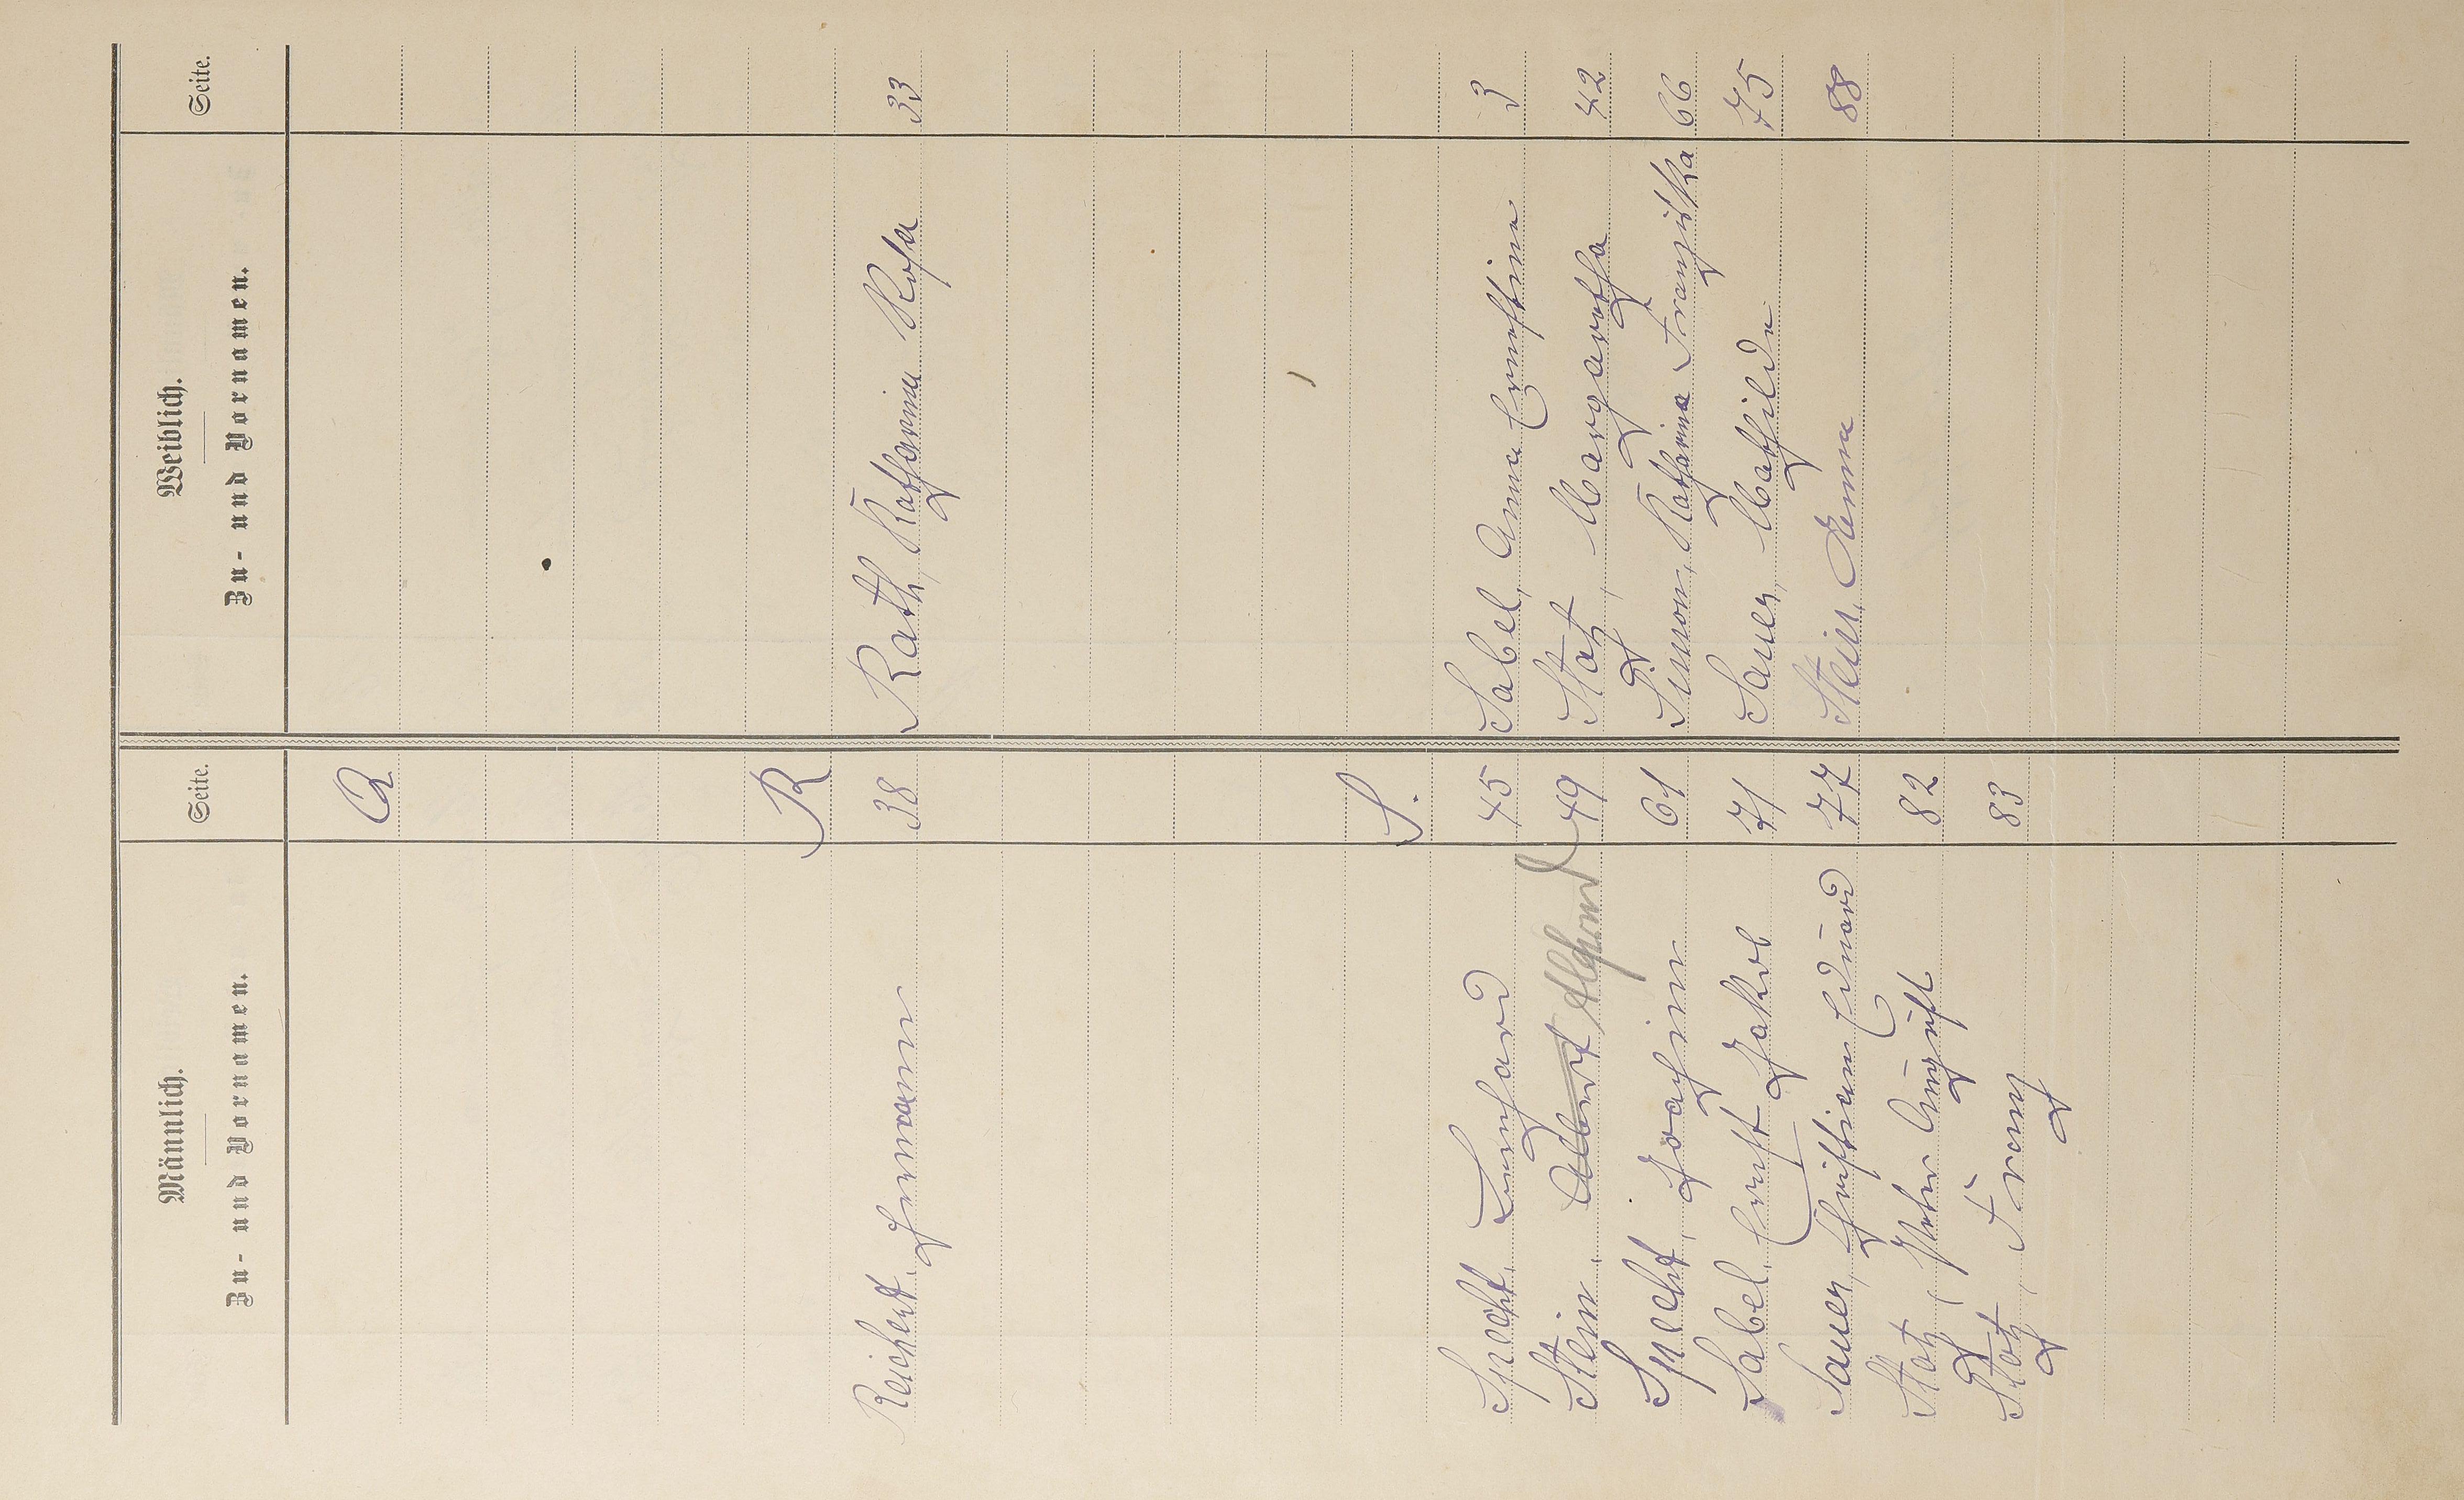 Männlich. Weiblich.
Zu- und Vornamen. Seite. Zu- und Vornamen. Seite.
Q
R
Reichert, Hermann 38 Rath, Katharina Rosa 33
S.
Specht, Leonhard 45 Sabel, Anna Ernestine 3
Stein, Albert Alfons 49 Stotz, Margaretha 42
Specht, Joachim 61 Simon, Katharina Franziska 66
Sabel, Ernst Jakob 71 Sauer, Mathilde 75
Sauer, Christian Eduard 77 Stein, Anna 88
Stotz, Peter August 82
Stotz, Franz 83